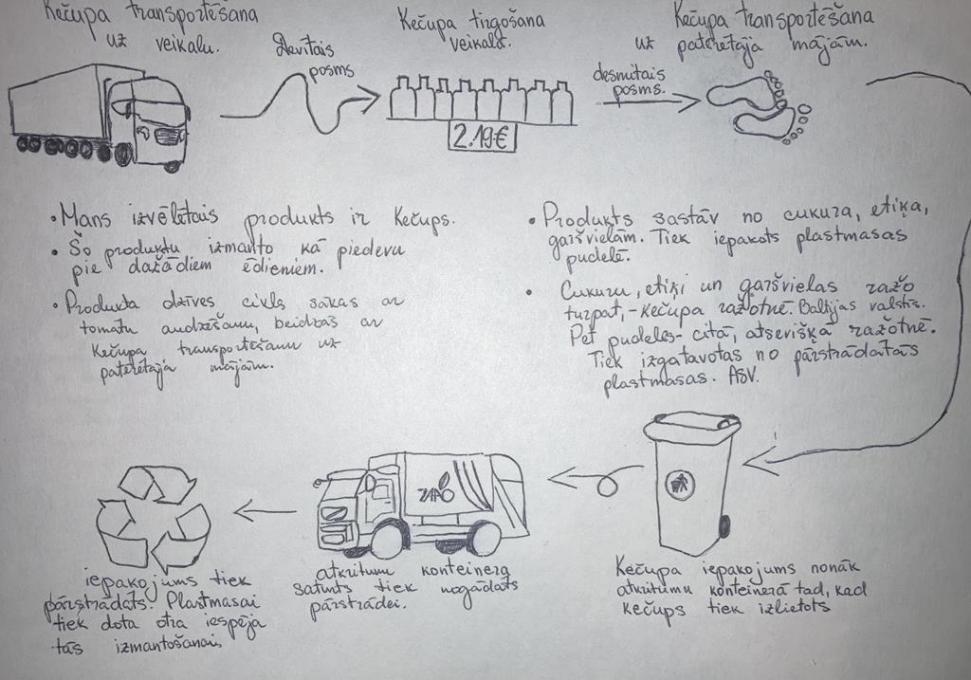 Kečupa transportēšana
uz veikalu.
devītais
posms
Kečupa tirgošana
veikalā.
2.19€
desmitais
posms.
Kečupa transportēšana
uz patērētāja mājām.
• Mans izvēlētais produkts ir Kečups.
• Šo produktu izmanto kā piedevu
pie dažādiem ēdieniem.
• Produkta dzīves cikls sākas ar
tomātu audzēšanu, beidzās ar
Kečupa transportēšanu uz
patērētāja mājām.
• Produkts sastāv no cukura, etiķa,
garšvielām. Tiek iepakots plastmasas
pudelē.
• Cukuru, etiķi un garšvielas ražo
turpat, - kečupa ražotnē. Baltijas valstīs.
Pet pudeles - citā, atsevišķā ražotnē.
Tiek izgatavotas no pārstrādātās
plastmasas. ASV.
iepakojums tiek
pārstrādāts. Plastmasai
tiek dota otra iespēja
tās izmantošanai,
atkritumu konteinera
saturs tiek nogādāts
pārstrādei.
Kečupa iepakojums nonāk
atkritumu konteinerā tad, kad
kečups tiek izlietots